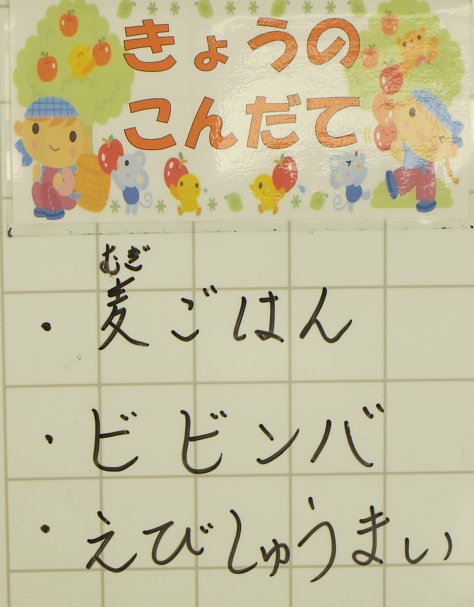 きょうの
こんだて
むぎ
・麦ごはん
・ビビンバ
・えびしゅうまい